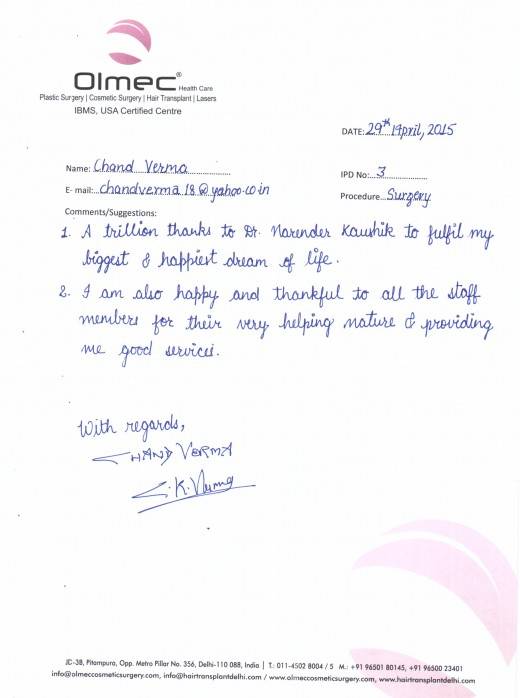 Olmec® Health Care
Plastic Surgery | Cosmetic Surgery | Hair Transplant | Lasers
IBMS, USA Certified Centre
DATE: 29th April, 2015
Name: Chand Verma
IPD No: 3
E- mail: chandverma18@yahoo.co.in
Procedure Surgery
Comments/Suggestions:
1. A trillion thanks to Dr. Narender Kaushik to fulfil my
biggest & happiest dream of life.
2. I am also happy and thankful to all the staff
members for their very helping nature & providing
me good services.
With regards,
CHAND VERMA
C.K. Verma
JC-3B, Pitampura, Opp. Metro Pillar No. 356, Delhi-110 088, India | T.: 011-4502 8004 / 5 M.: +91 96501 80145, +91 96500 23401
info@olmeccosmeticsurgery.com, info@hairtransplantdelhi.com / www.olmeccosmeticsurgery.com, www.hairtransplantdelhi.com